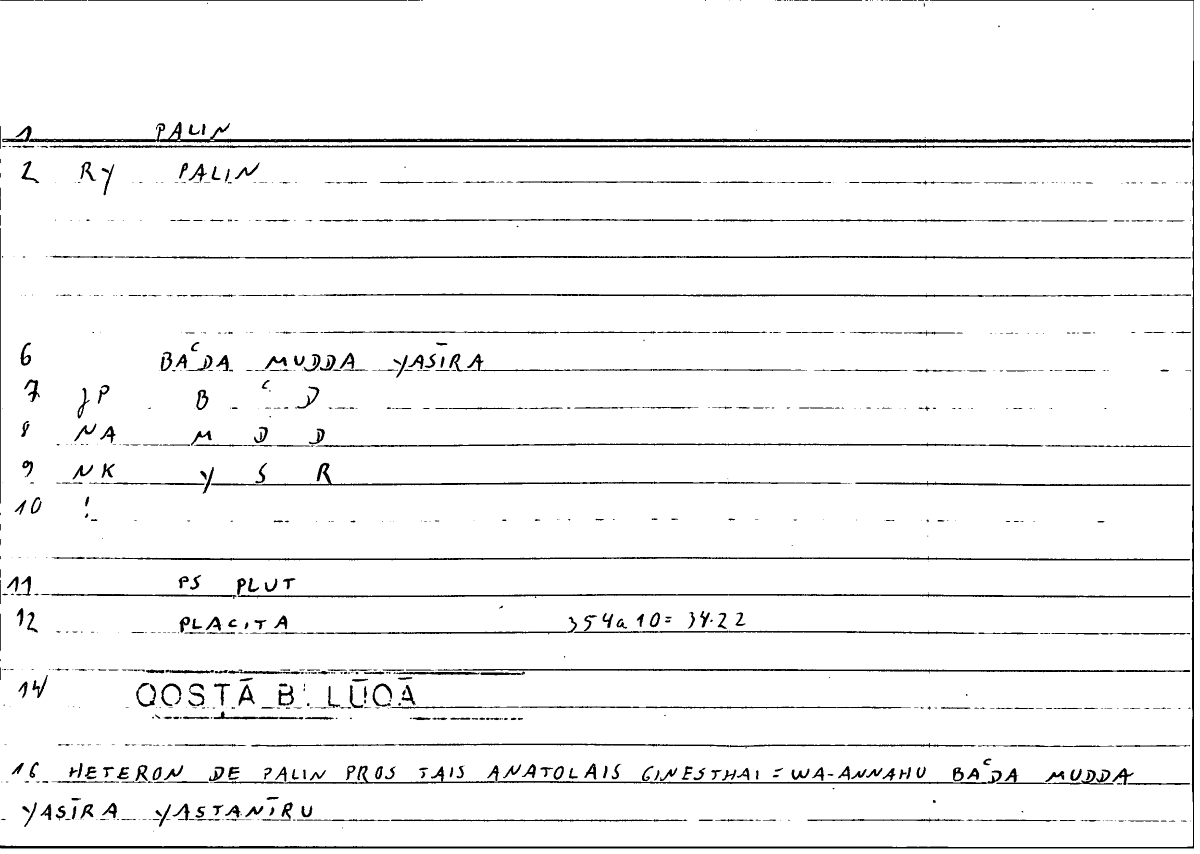 1 PALIN
2 RY PALIN
6 BAᶜDA MUDDA YASĪRA
7 JP B ᶜ D
8 NA M D D
9 NK Y S R
10 !
11 PS PLUT
12 PLACITA 354a10= 34.22
14 QOSṬĀ B. LŪQĀ
16 HETERON DE PALIN PROS TAIS ANATOLAIS GINESTHAI = WA-ANNAHU BAᶜDA MUDDA
YASĪRA YASTANĪRU